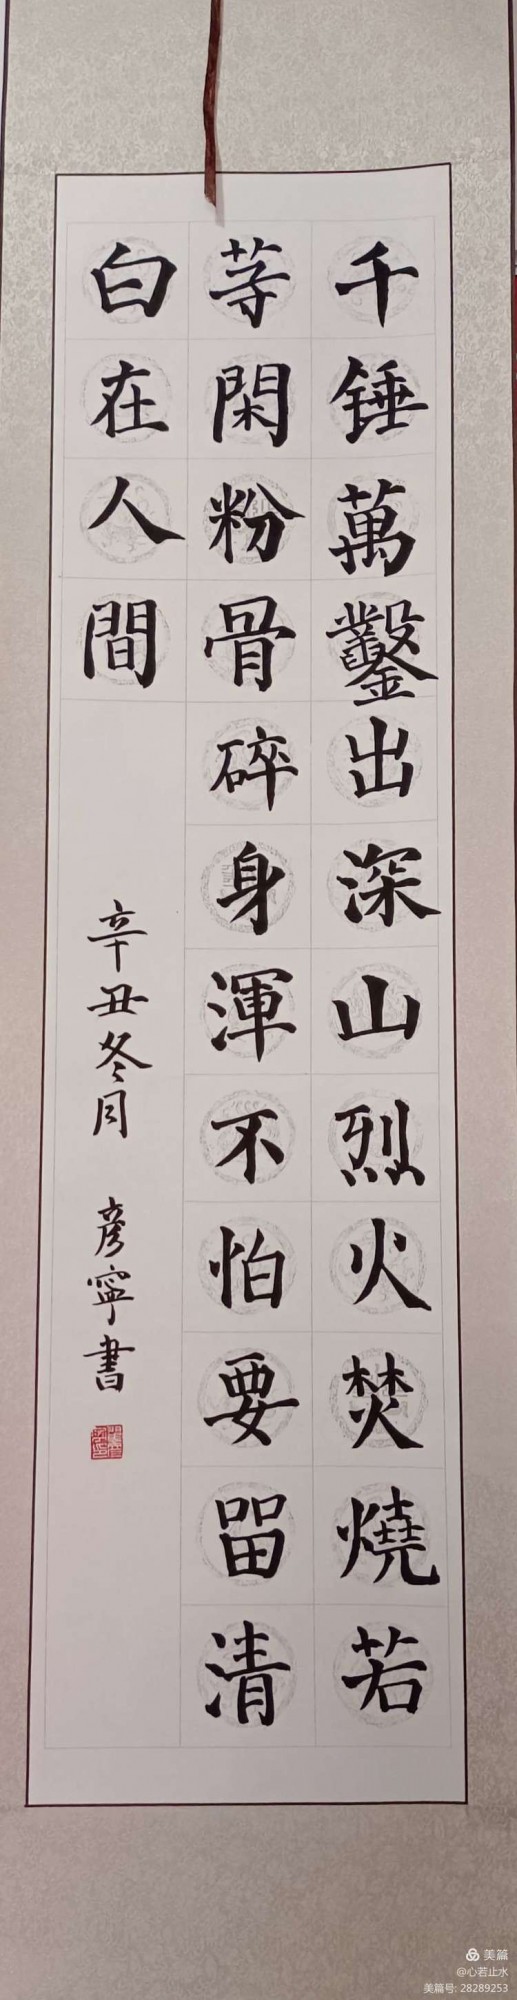 千锤萬鑿出深山烈火焚燒若
等閑粉骨碎身渾不怕要留清
白在人間
辛丑冬月 彦寧書
美篇
@心若止水
美篇号: 28289253